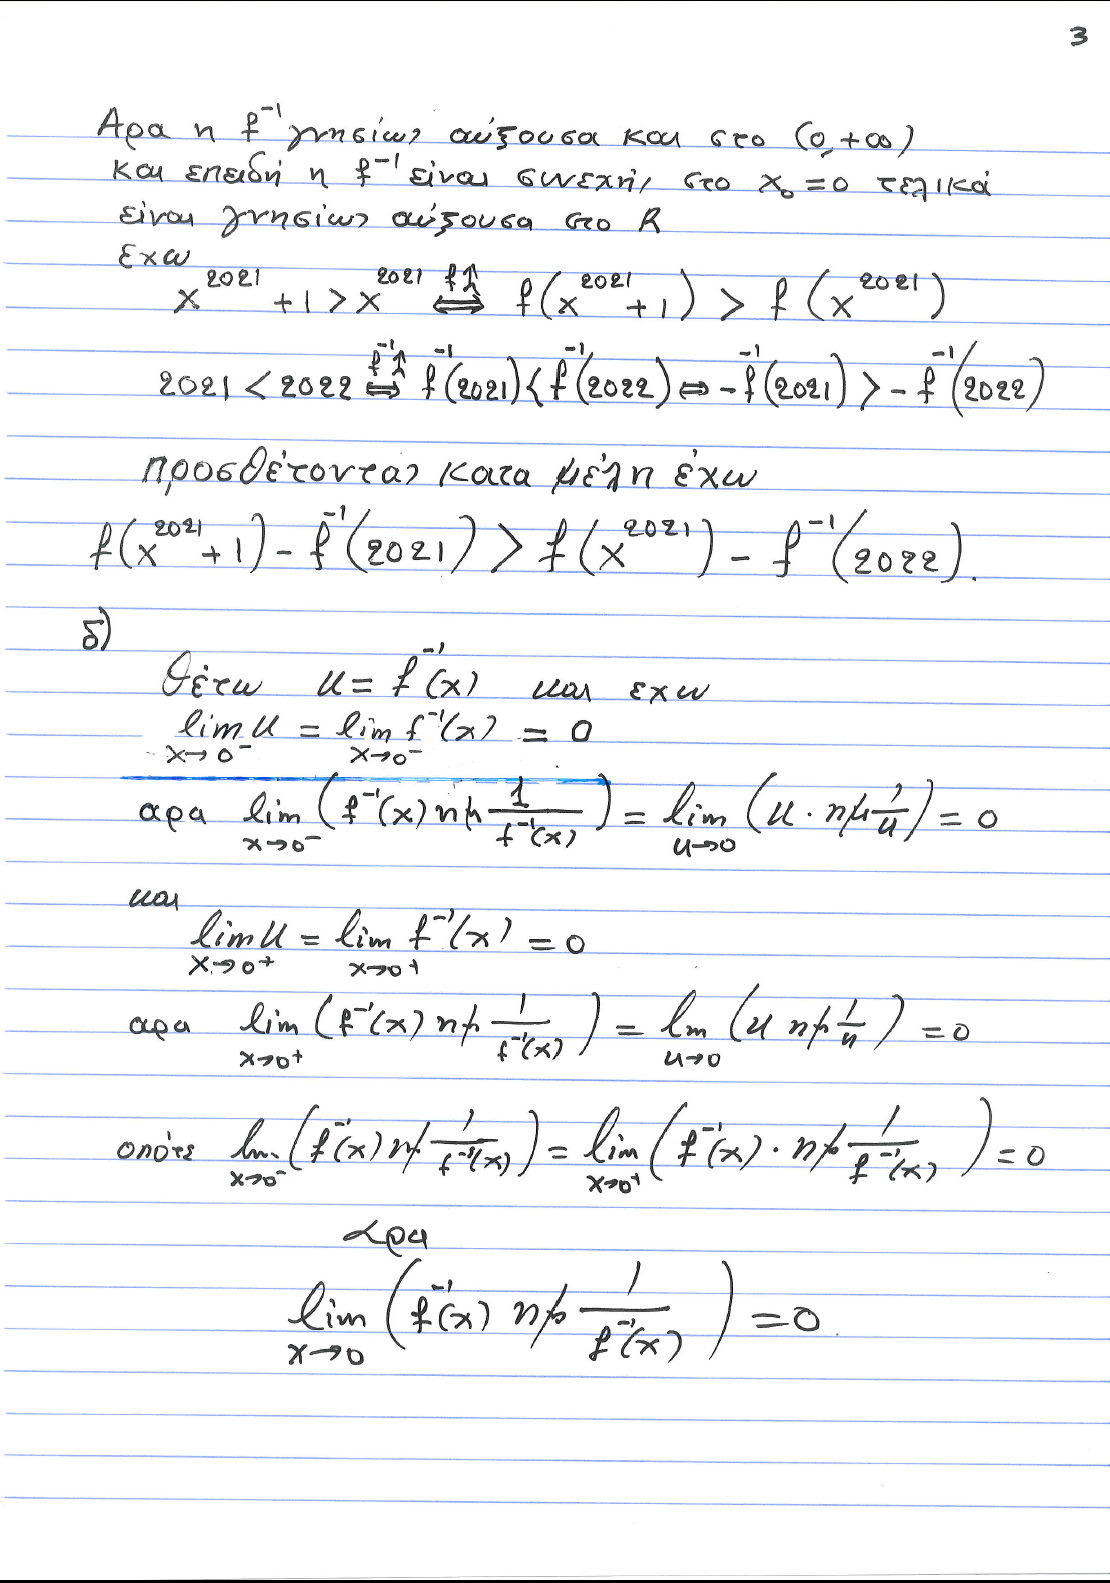 3
Αρα η f⁻¹ γνησίως αύξουσα και στο (0,+∞)
και επειδή η f⁻¹ είναι συνεχής στο x₀=0 τελικά
είναι γνησίως αύξουσα στο R
Εχω
x²⁰²¹+1>x²⁰²¹ ⇔(f↑) f(x²⁰²¹+1) > f(x²⁰²¹)
2021<2022 ⇔(f⁻¹↑) f⁻¹(2021)<f⁻¹(2022) ⇔ -f⁻¹(2021) > -f⁻¹(2022)
προσθέτοντας κατα μέλη έχω
f(x²⁰²¹+1)-f⁻¹(2021) > f(x²⁰²¹)-f⁻¹(2022).
δ)
Θέτω u=f⁻¹(x) και εχω
lim_{x→0⁻} u = lim_{x→0⁻} f⁻¹(x) = 0
αρα lim_{x→0⁻} (f⁻¹(x) ημ 1/f⁻¹(x)) = lim_{u→0} (u · ημ 1/u) = 0
και
lim_{x→0⁺} u = lim_{x→0⁺} f⁻¹(x) = 0
αρα lim_{x→0⁺} (f⁻¹(x) ημ 1/f⁻¹(x)) = lim_{u→0} (u ημ 1/u) = 0
οπότε lim_{x→0⁻} (f⁻¹(x) ημ 1/f⁻¹(x)) = lim_{x→0⁺} (f⁻¹(x) · ημ 1/f⁻¹(x)) = 0
αρα
lim_{x→0} (f⁻¹(x) ημ 1/f⁻¹(x)) = 0